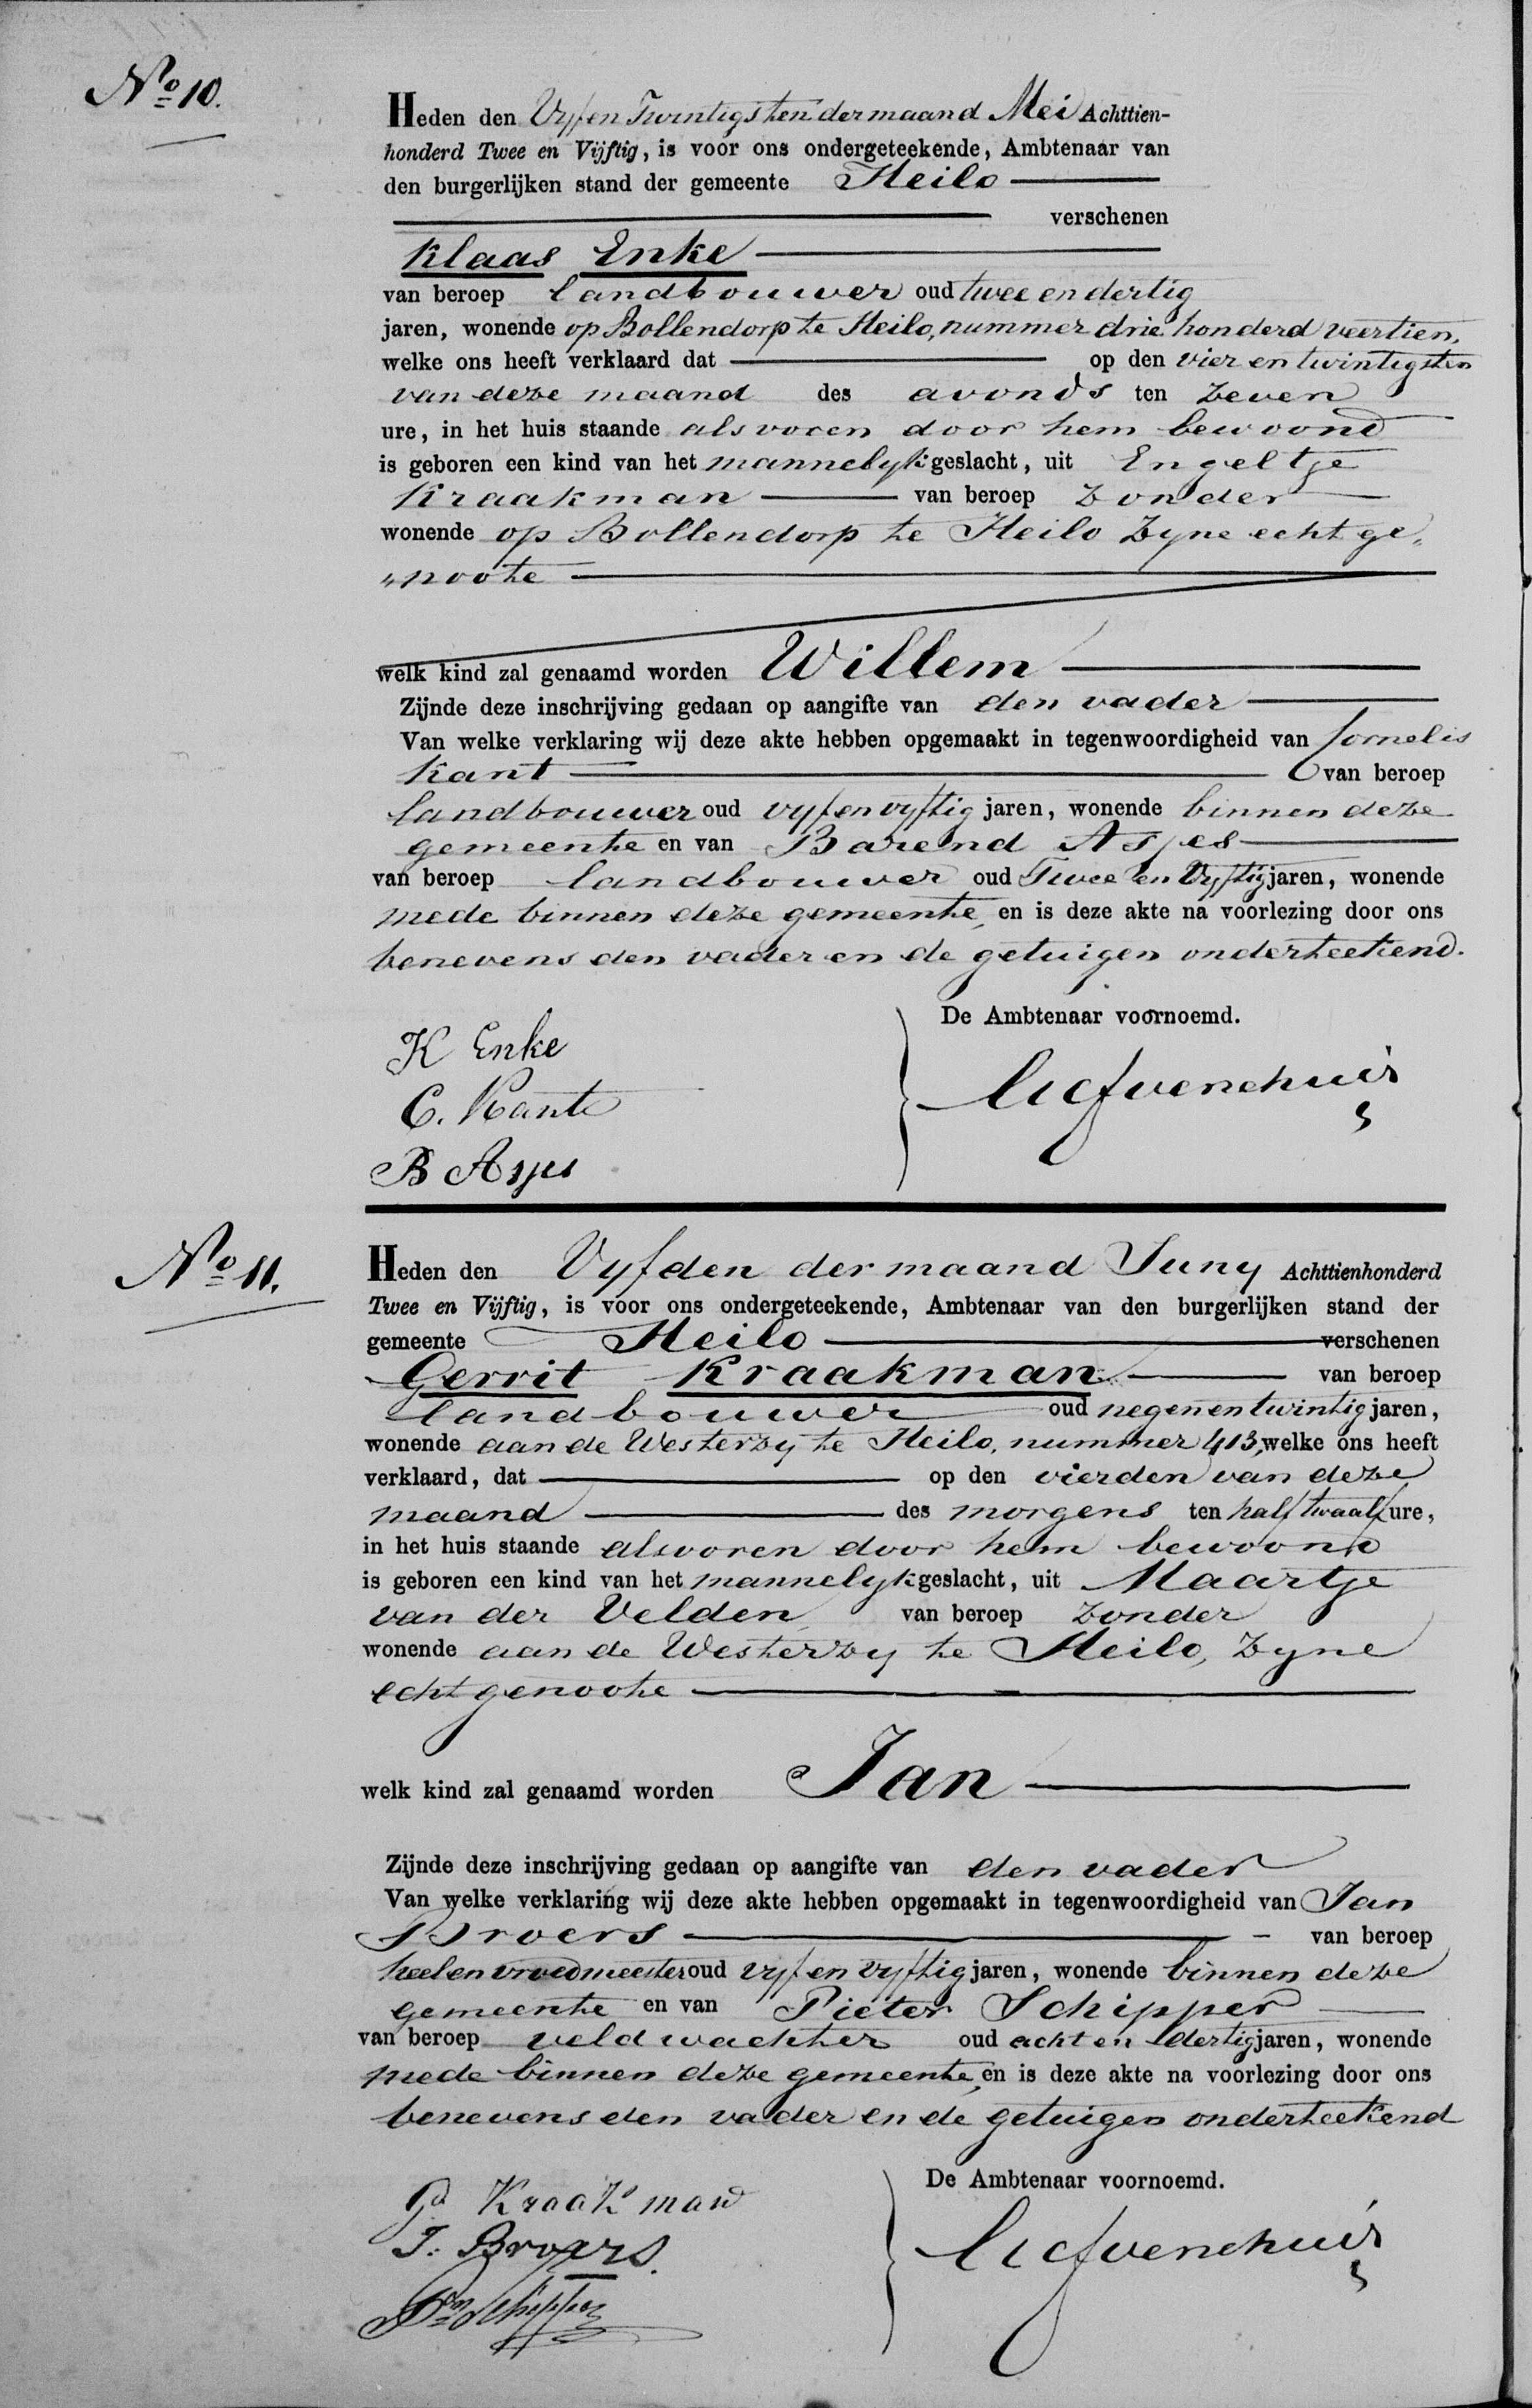 No 10.
Heden den Vyf en Twintigsten der maand Mei Achttien-
honderd Twee en Vijftig, is voor ons ondergeteekende, Ambtenaar van
den burgerlijken stand der gemeente Heilo
verschenen
Klaas Enke
van beroep landbouwer oud twee en dertig
jaren, wonende op Bollendorp te Heilo, nummer drie honderd veertien,
welke ons heeft verklaard dat op den vier en twintigsten
van deze maand des avonds ten zeven
ure, in het huis staande als voren door hem bewoond
is geboren een kind van het mannelyk geslacht, uit Engeltje
Kraakman van beroep zonder
wonende op Bollendorp te Heilo zyne echtge„
„noote
welk kind zal genaamd worden Willem
Zijnde deze inschrijving gedaan op aangifte van den vader
Van welke verklaring wij deze akte hebben opgemaakt in tegenwoordigheid van Cornelis
Kant van beroep
landbouwer oud vyf en vyftig jaren, wonende binnen deze
gemeente en van Barend Asjes
van beroep landbouwer oud Twee en Vyftig jaren, wonende
mede binnen deze gemeente, en is deze akte na voorlezing door ons
benevens den vader en de getuigen onderteekend.
De Ambtenaar voornoemd.
K Enke
C. Kant
B Asjes
No 11.
Heden den Vyfden der maand Juny Achttienhonderd
Twee en Vijftig, is voor ons ondergeteekende, Ambtenaar van den burgerlijken stand der
gemeente Heilo verschenen
Gerrit Kraakman van beroep
landbouwer oud negen en twintig jaren,
wonende aan de Westerzy te Heilo, nummer 413, welke ons heeft
verklaard, dat op den vierden van deze
maand des morgens ten half twaalf ure,
in het huis staande alsvoren door hem bewoond
is geboren een kind van het mannelyk geslacht, uit Maartje
van der Velden, van beroep zonder
wonende aan de Westerzy te Heilo, zyne
echtgenoote
welk kind zal genaamd worden Jan
Zijnde deze inschrijving gedaan op aangifte van den vader
Van welke verklaring wij deze akte hebben opgemaakt in tegenwoordigheid van Jan
Broers van beroep
heel en vroedmeester oud vyf en vyftig jaren, wonende binnen deze
gemeente en van Pieter Schipper
van beroep veldwachter oud acht en dertig jaren, wonende
mede binnen deze gemeente, en is deze akte na voorlezing door ons
benevens den vader en de getuigen onderteekend
De Ambtenaar voornoemd.
G. Kraakman
J. Broers.
Schipper